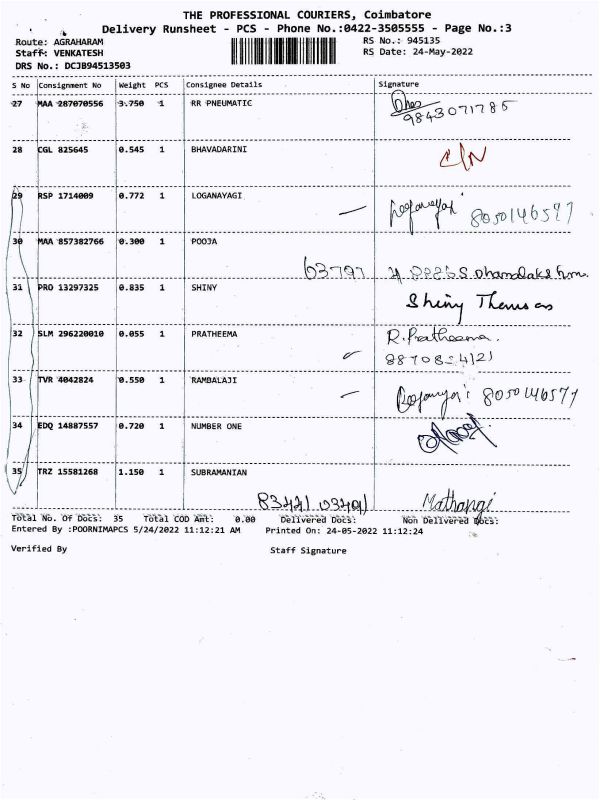 THE PROFESSIONAL COURIERS, Coimbatore
Delivery Runsheet - PCS - Phone No.:0422-3505555 - Page No.:3
Route: AGRAHARAM
RS No.: 945135
Staff: VENKATESH
RS Date: 24-May-2022
DRS No.: DCJB94513503
S No Consignment No Weight PCS Consignee Details Signature
27 MAA 287070556 3.750 1 RR PNEUMATIC
9843071785
28 CGL 825645 0.545 1 BHAVADARINI C/N
29 RSP 1714009 0.772 1 LOGANAYAGI
8050146577
30 MAA 857382766 0.300 1 POOJA
31 PRO 13297325 0.835 1 SHINY
Shiny Thomas
32 SLM 296220010 0.055 1 PRATHEEMA R.Pratheema.
33 TVR 4042824 0.550 1 RAMBALAJI
8050146577
34 EDQ 14887557 0.720 1 NUMBER ONE
35 TRZ 15581268 1.150 1 SUBRAMANIAN
Mathangi
Total No. Of Docs: 35 Total COD Amt: 0.00 Delivered Docs: Non Delivered Docs:
Entered By :POORNIMAPCS 5/24/2022 11:12:21 AM Printed On: 24-05-2022 11:12:24
Verified By Staff Signature